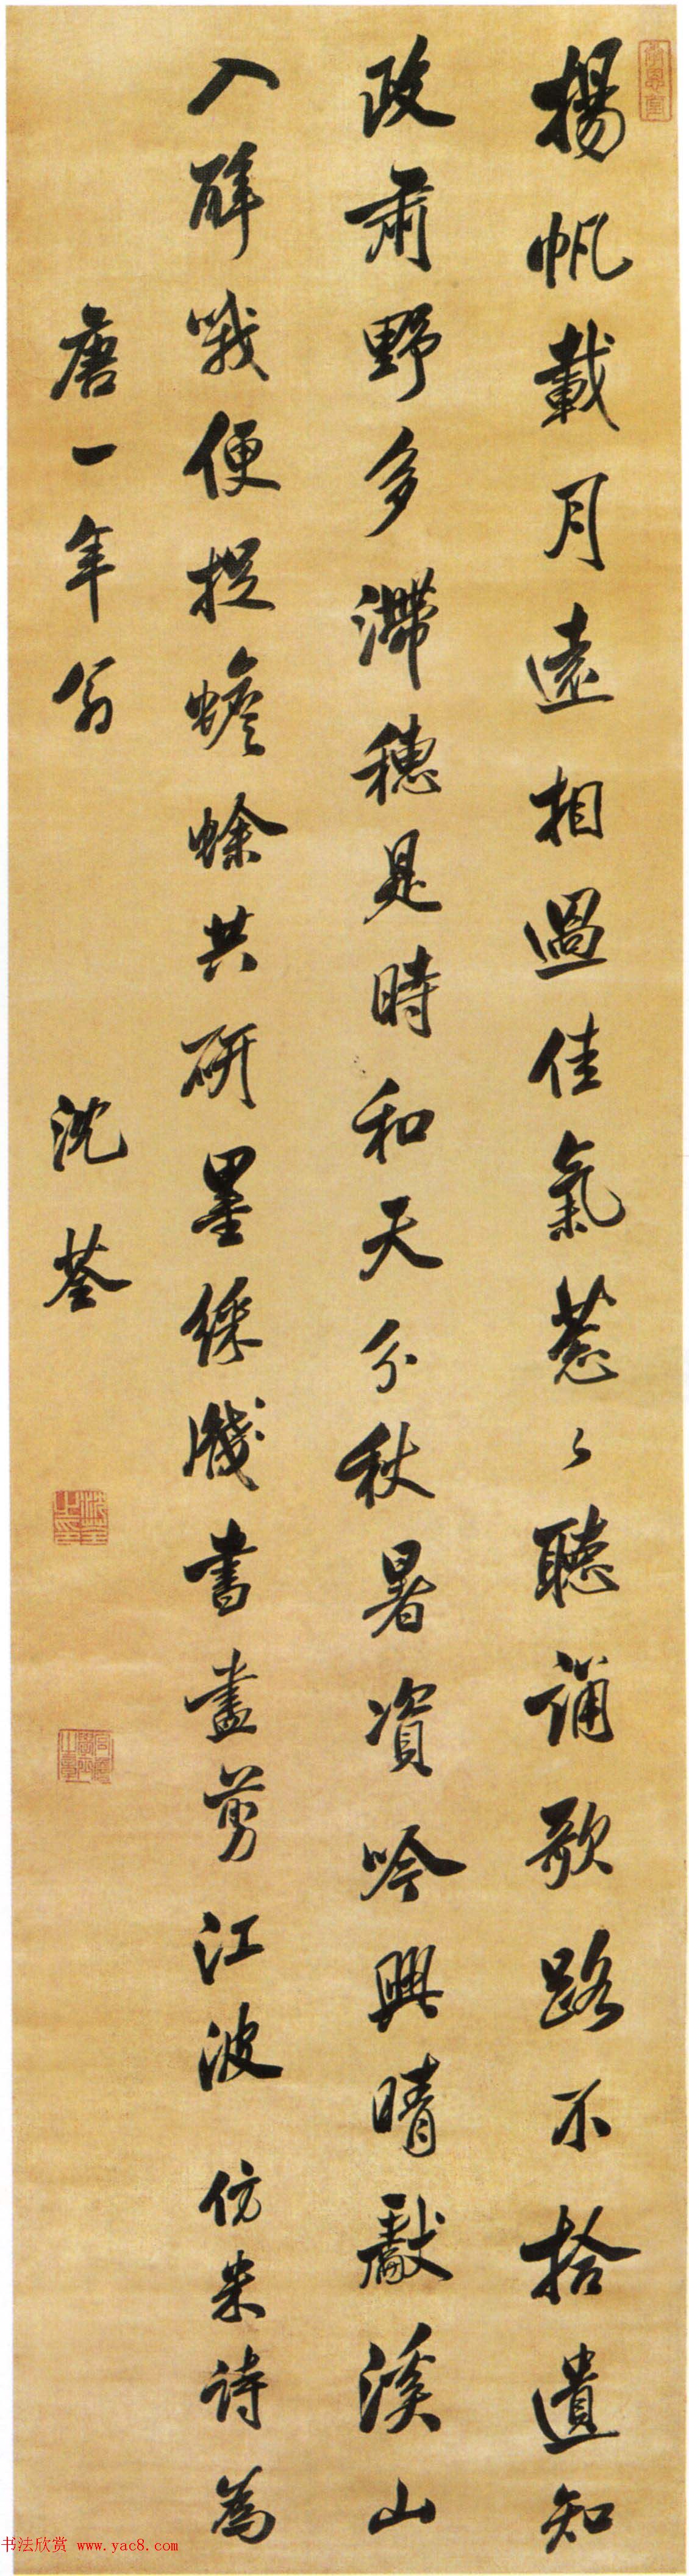 揚帆載月遠相過佳氣蔥々聽誦歌路不拾遺知
政肅野多滯穗是時和天分秋暑資吟興晴獻溪山
入醉哦便捉蟾蜍共研墨綵牋書盡剪江波 仿米詩為
唐一年翁 沈荃
书法欣赏 www.yac8.com